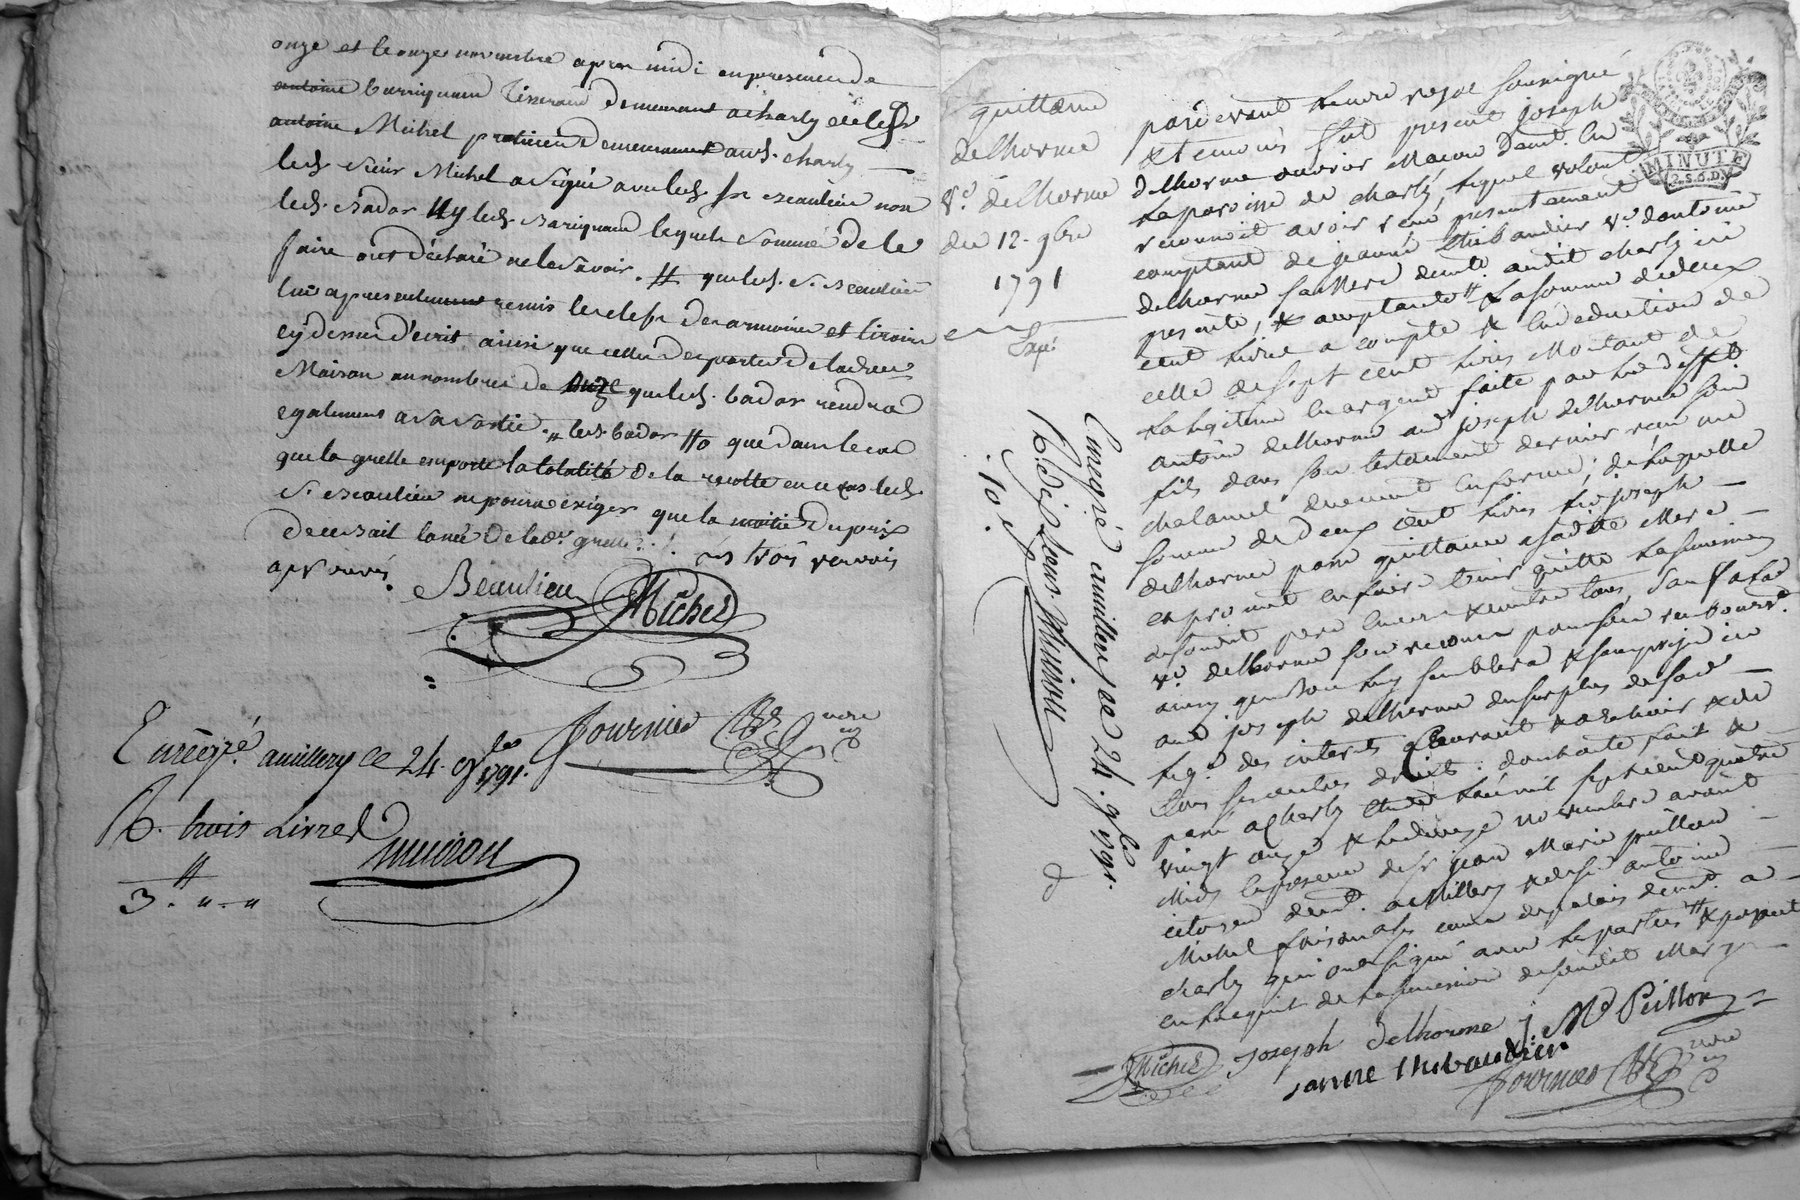 onze et le onze novembre apres midi en presence de
antoine barriquand Tisserand demeurant a charly et de sr
antoine Michel praticien demeurant aud. charly
led. sieur Michel a signé avec led. sr Beaulieu non
led. Badar ny led. Bariquand lesquels sommé de le
faire ont déclaré ne le savoir. # que led. S. Beaulieu
lui a presentement remis les clefs des armoires et tiroirs
cy dessus d'ecrit ainsi que celles des portes de lad.
Maison au nombre de onze que led. badar rendra
egalement a sa sortie. led. badar que dans le cas
que la grelle emporte la totalité de la recolte en ce cas led.
S. Beaulieu ne pourra exiger que la moitié du prix
de ce bail l'année de lad. grelle. les trois renvois
aprouvés.
Beaulieu Michel
Fournier
Enregré. a millery ce 24. 9bre 1791.
R. trois Livres
Mution
3. " . "
quittance
delhorme
Ve. delhorme
du 12. 9bre
1791
Exp.
Enregré a millery ce 24. 9bre 1791.
R. dix sous. Mution
. 10 s
pardevant Notaire royal soussigné
& temoins fut present joseph
delhorme ouvrier Macon demt. en
la paroisse de charly, lequel volont
reconnoit avoir reçu presentement
comptant de jeanne thibaudier Ve. d'antoine
delhorme demte. audit charly ici
presente, & acceptante # la somme de deux
cent livres a compte & en deduction de
celle de sept cent livres Montant de
la legitime en argent faite par led. deffunt
antoine delhorme aud. joseph delhorme son
fils dans son testament dernier reçu me
chalamel duement en forme; de laquelle
somme de deux cent livres led. joseph
delhorme passe quittance a sadite Mere
et promet en faire tenir quitte la succession
de sondit pere envers & contre tous, sauf a lad.
Ve. delhorme son recours pour son rembourst.
ainsy que bon luy semblera & sans prejudice
aud. joseph delhorme du surplus de sad.
legit. des interets courants & a echoir & de
tous ses autres droits: dont acte fait &
passé a charly etude l'an mil sept cent quatre
vingt onze & le douze novembre avant
Midi en presence de sr jean Marie pullion
citoyen demt. a Millery & de sr antoine
Michel demt. a
charly qui ont signé avec les parties #
en l'acquit de la succession de sondit Mary
Michel Joseph delhorme j. Me Pullion
janne thibaudier
Fournier